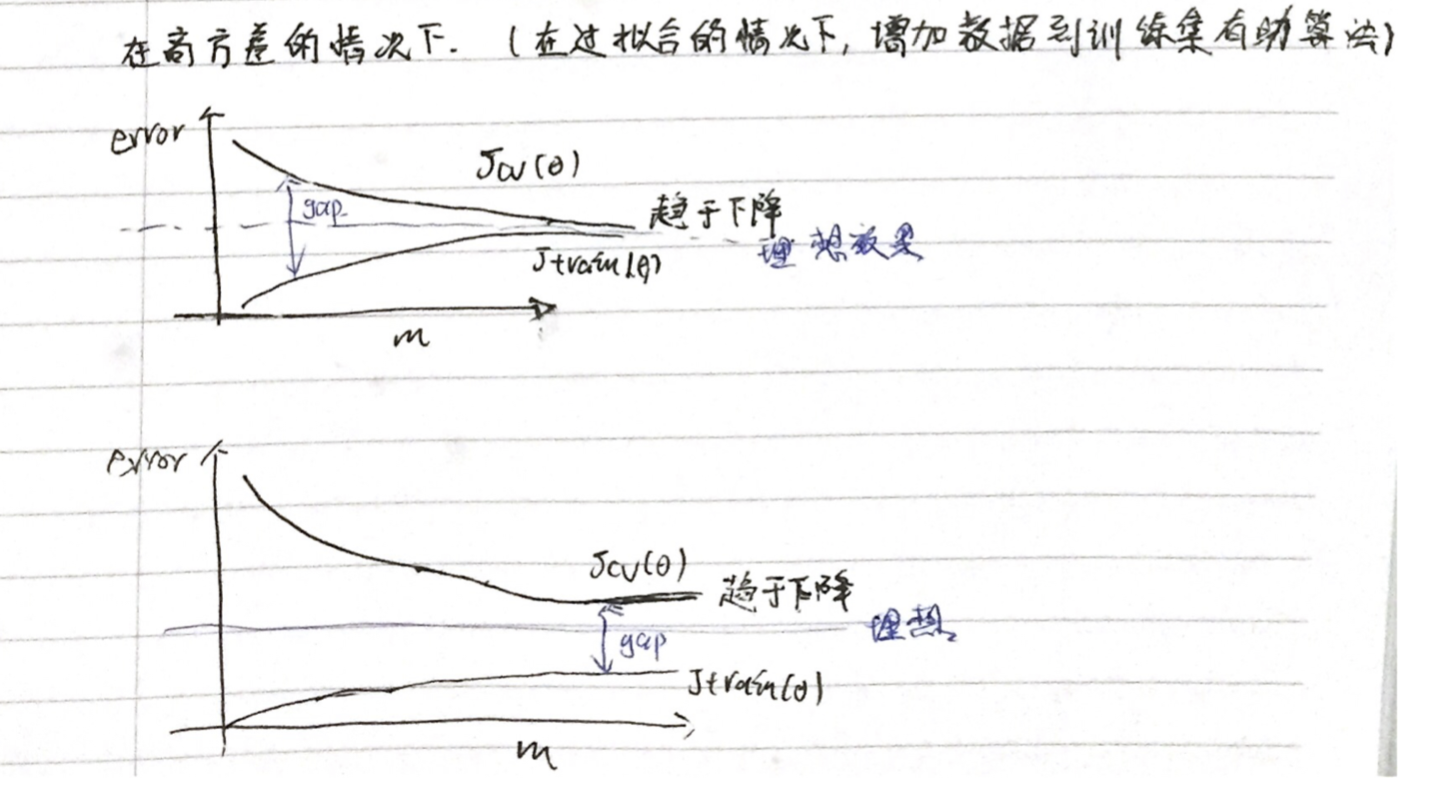 在高方差的情况下. (在过拟合的情况下, 增加数据到训练集有助算法)
error
Jcv(θ)
gap
趋于下降
理想效果
Jtrain(θ)
m
error
Jcv(θ)
趋于下降
理想
gap
Jtrain(θ)
m